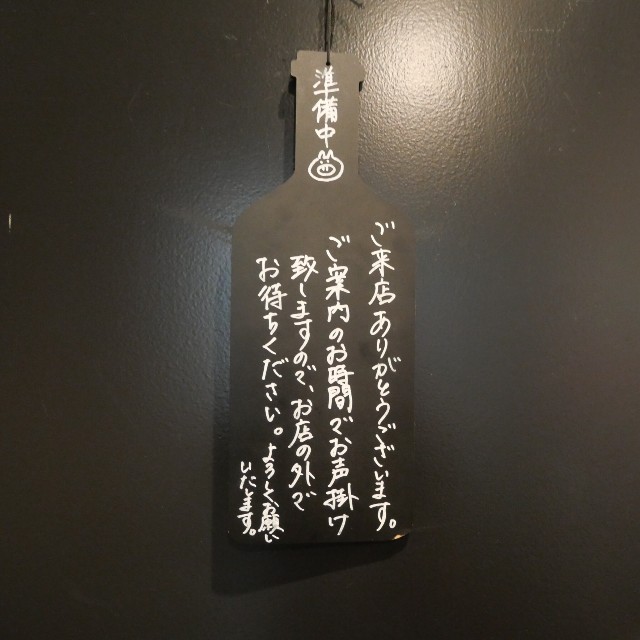 準備中
ご来店ありがとうございます。
ご案内のお時間でお声掛け
致しますので、お店の外で
お待ちください。よろしくお願い
いたします。